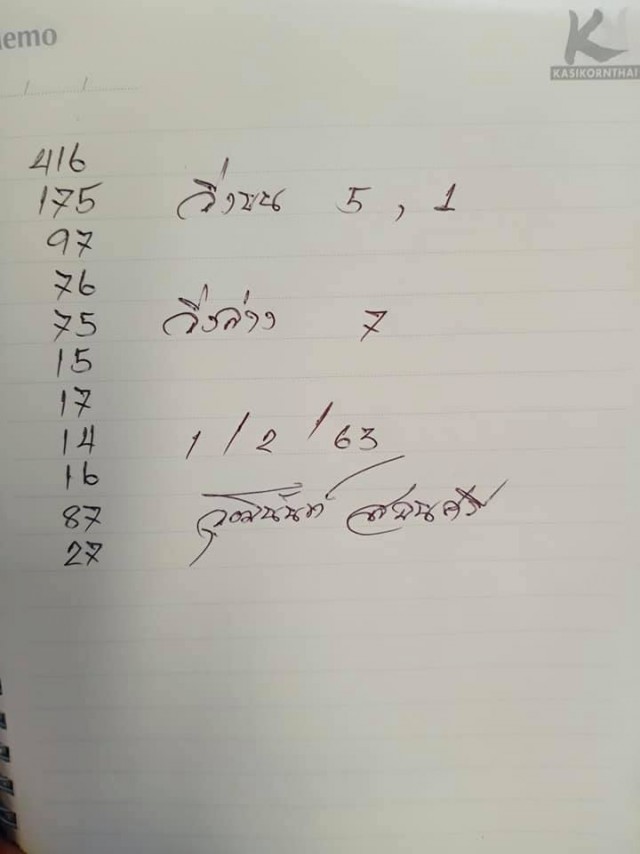 emo
KASIKORNTHAI
416
175 วิ่งบน 5 , 1
97
76
75 วิ่งล่าง 7
15
17
14 1 / 2 / 63
16
87
27